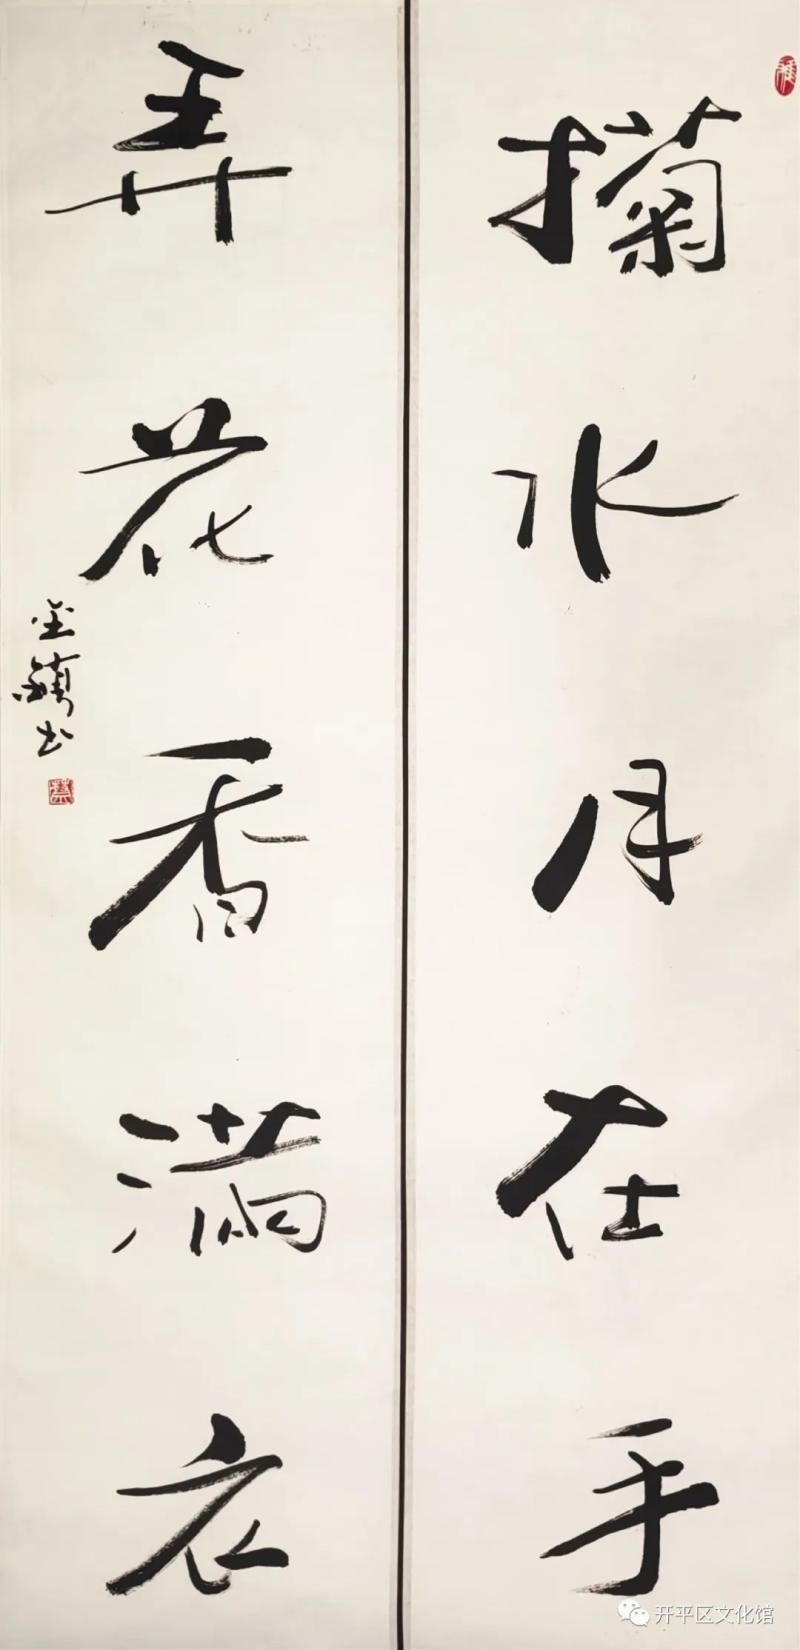 掬水月在手
弄花香满衣
开平区文化馆